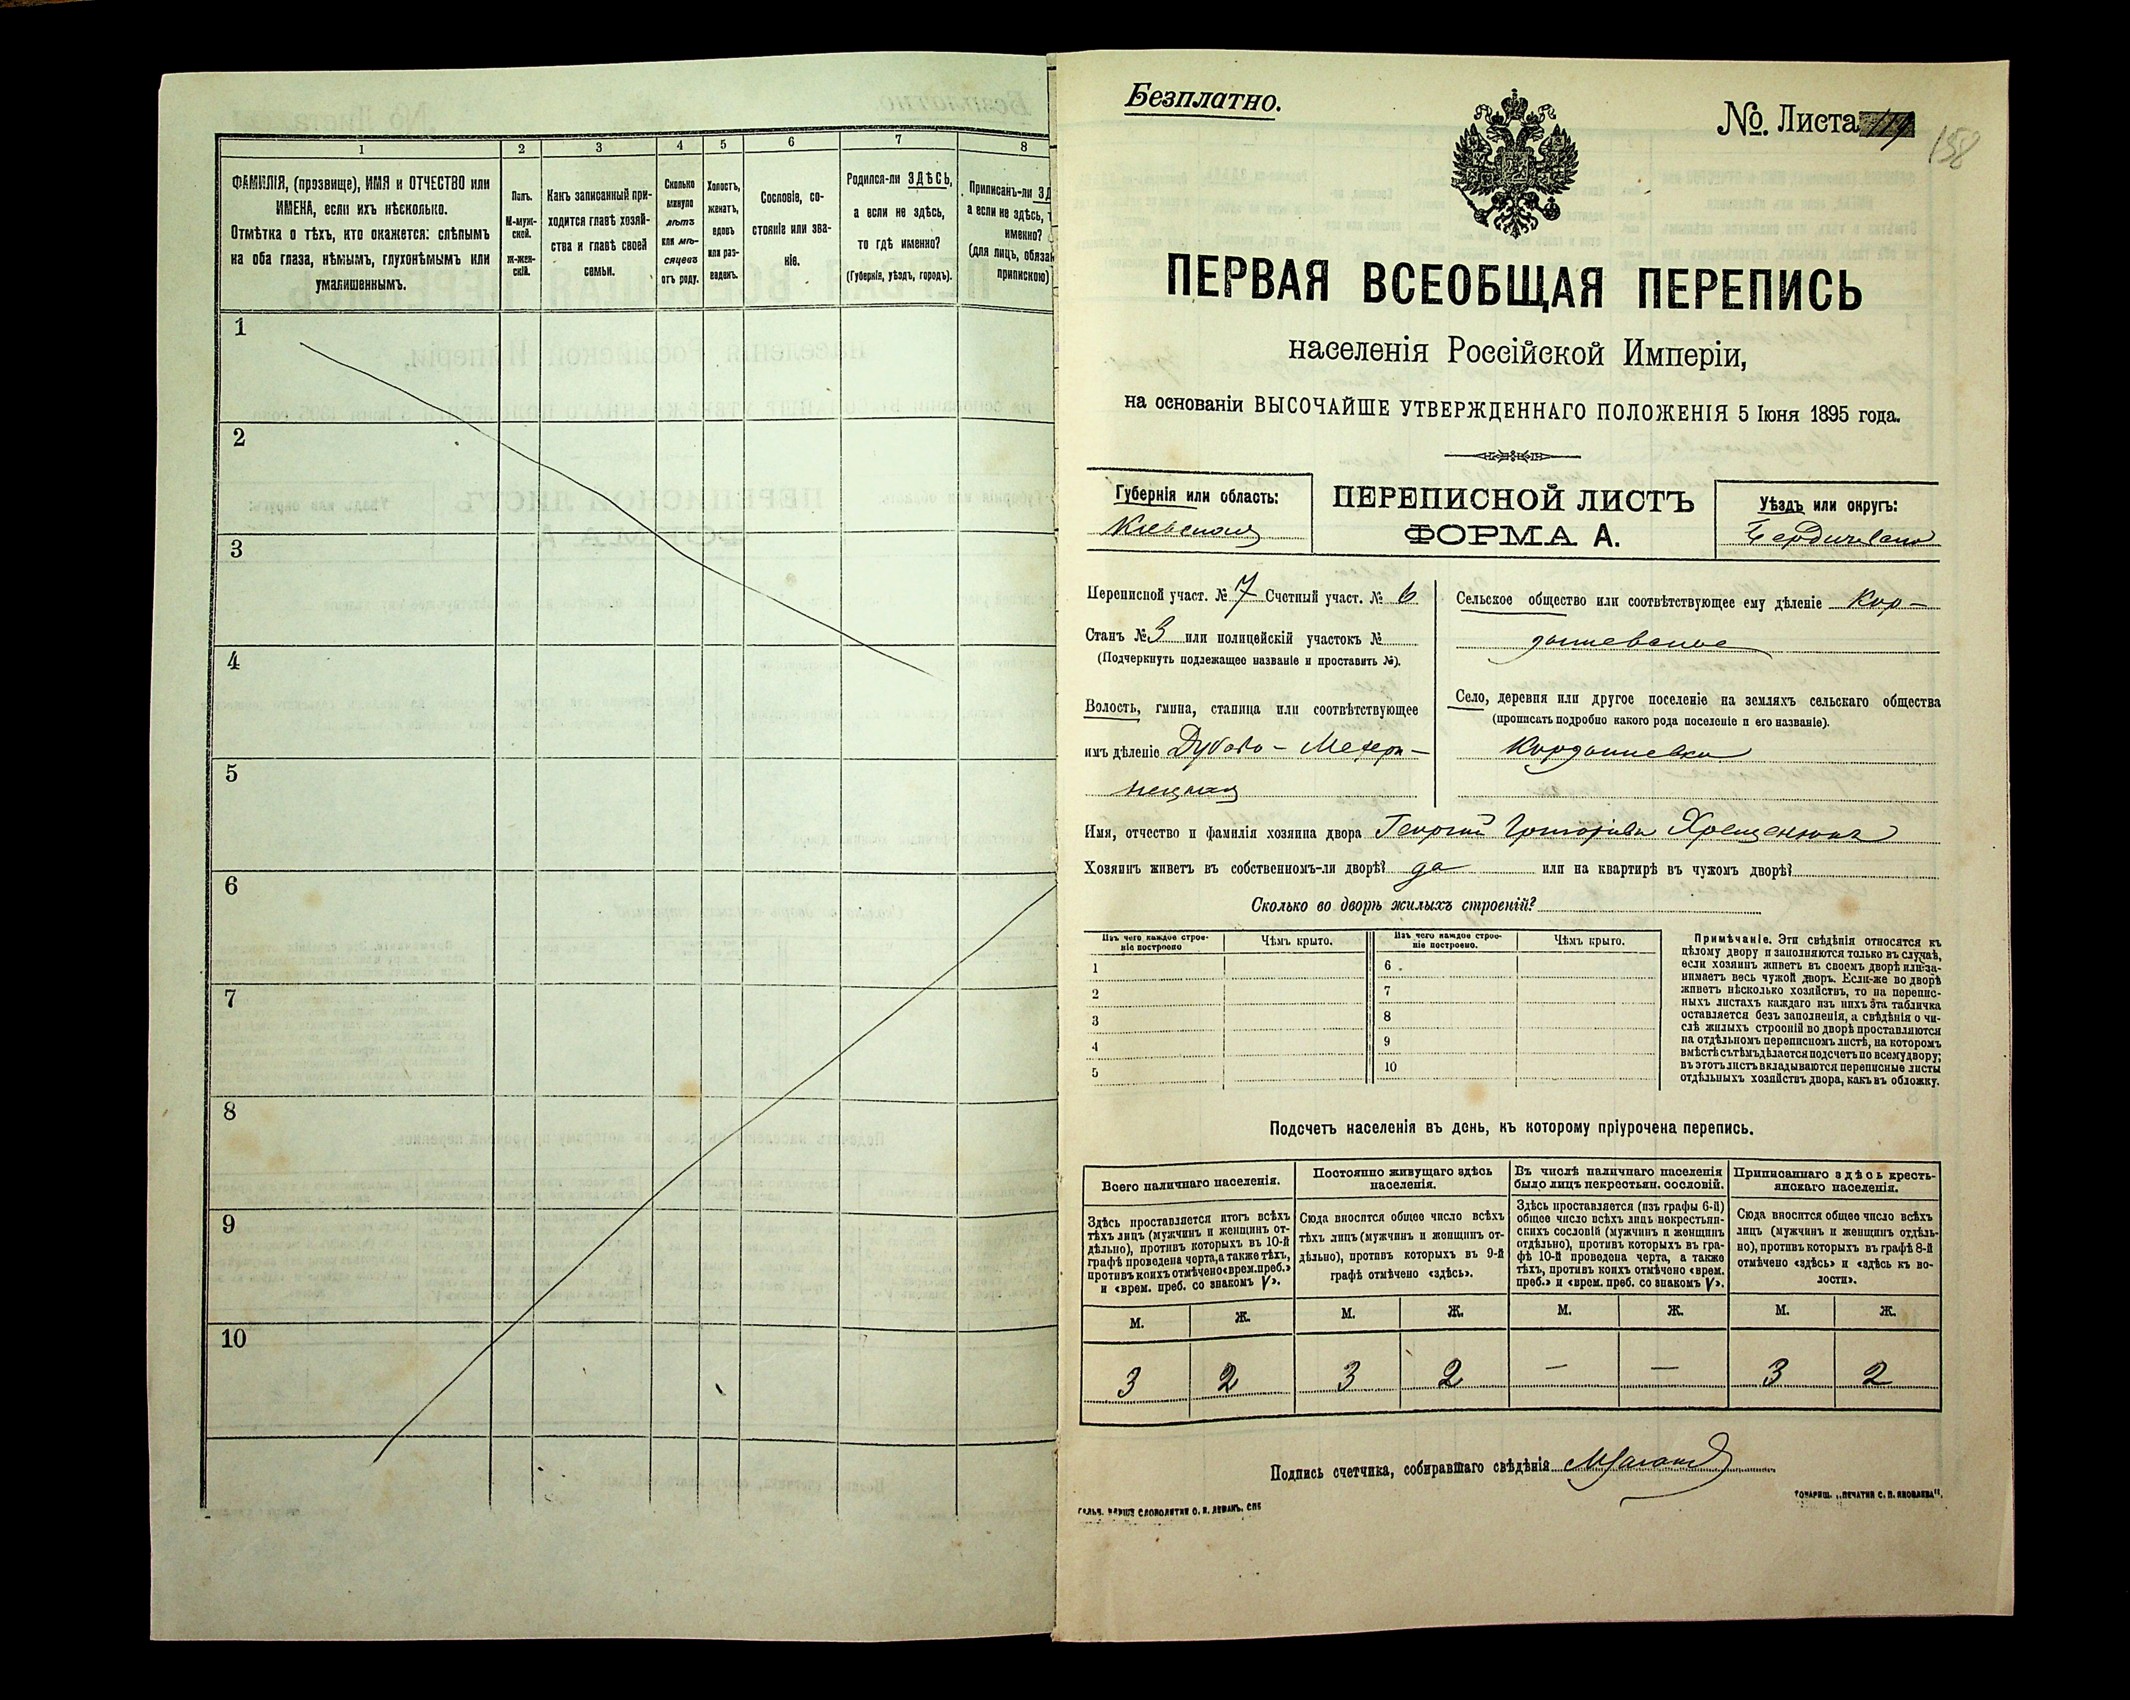 1
2
3
4
5
6
7
8
ФАМИЛІЯ, (прозвище), ИМЯ и ОТЧЕСТВО или
ИМЕНА, если ихъ нѣсколько.
Отмѣтка о тѣхъ, кто окажется: слѣпымъ
на оба глаза, нѣмымъ, глухонѣмымъ или
умалишеннымъ.
Полъ.
М-муж-
ской.
ж-жен-
скій.
Какъ записанный при-
ходится главѣ хозяй-
ства и главѣ своей
семьи.
Сколько
минуло
лѣтъ
или мѣ-
сяцевъ
отъ роду.
Холостъ,
женатъ,
вдовъ
или раз-
веденъ.
Сословіе, со-
стояніе или зва-
ніе.
Родился-ли ЗДѢСЬ,
а если не здѣсь,
то гдѣ именно?
(Губернія, уѣздъ, городъ).
Приписанъ-ли
а если не здѣсь,
именно?
(для лицъ,
припискою)
1
2
3
4
5
6
7
8
9
10
Безплатно.
№. Листа 119
158
ПЕРВАЯ ВСЕОБЩАЯ ПЕРЕПИСЬ
населенія Россійской Имперіи,
на основаніи ВЫСОЧАЙШЕ УТВЕРЖДЕННАГО ПОЛОЖЕНІЯ 5 Іюня 1895 года.
Губернія или область:
Кіевская
ПЕРЕПИСНОЙ ЛИСТЪ
ФОРМА А.
Уѣздъ или округъ:
Бердичевскій
Переписной участ. № 7 Счетный участ. № 6
Станъ № 3 или полицейскій участокъ №
(Подчеркнуть подлежащее названіе и проставить №).
Волость, гмина, станица или соотвѣтствующее
имъ дѣленіе Дубово - Мехери-
нецкая
Сельское общество или соотвѣтствующее ему дѣленіе Кор-
дышевское
Село, деревня или другое поселеніе на земляхъ сельскаго общества
(прописать подробно какого рода поселеніе и его названіе).
Кордышевка
Имя, отчество и фамилія хозяина двора Георгій Григорьевъ Хрещенюкъ
Хозяинъ живетъ въ собственномъ-ли дворѣ? да или на квартирѣ въ чужомъ дворѣ?
Сколько во дворѣ жилыхъ строеній?
Изъ чего каждое строе-
ніе построено
Чѣмъ крыто.
Изъ чего каждое строе-
ніе построено.
Чѣмъ крыто.
1
2
3
4
5
6
7
8
9
10
Примѣчаніе. Эти свѣдѣнія относятся къ
цѣлому двору и заполняются только въ случаѣ,
если хозяинъ живетъ въ своемъ дворѣ или за-
нимаетъ весь чужой дворъ. Если-же во дворѣ
живетъ нѣсколько хозяйствъ, то на перепис-
ныхъ листахъ каждаго изъ нихъ эта табличка
оставляется безъ заполненія, а свѣдѣнія о чи-
слѣ жилыхъ строеній во дворѣ проставляются
на отдѣльномъ переписномъ листѣ, на которомъ
вмѣстѣ съ тѣмъ дѣлается подсчетъ по всему двору;
въ этотъ листъ вкладываются переписные листы
отдѣльныхъ хозяйствъ двора, какъ въ обложку.
Подсчетъ населенія въ день, къ которому пріурочена перепись.
Всего наличнаго населенія.
Постоянно живущаго здѣсь
населенія.
Въ числѣ наличнаго населенія
было лицъ некрестьян. сословій.
Приписаннаго здѣсь кресть-
янскаго населенія.
Здѣсь проставляется итогъ всѣхъ
тѣхъ лицъ (мужчинъ и женщинъ от-
дѣльно), противъ которыхъ въ 10-й
графѣ проведена черта, а также тѣхъ,
противъ коихъ отмѣчено «врем. преб.»
и «врем. преб. со знакомъ V».
Сюда вносится общее число всѣхъ
тѣхъ лицъ (мужчинъ и женщинъ от-
дѣльно), противъ которыхъ въ 9-й
графѣ отмѣчено «здѣсь».
Здѣсь проставляется (изъ графы 6-й)
общее число всѣхъ лицъ некрестьян-
скихъ сословій (мужчинъ и женщинъ
отдѣльно), противъ которыхъ въ гра-
фѣ 10-й проведена черта, а также
тѣхъ, противъ коихъ отмѣчено «врем.
преб.» и «врем. преб. со знакомъ V».
Сюда вносится общее число всѣхъ
лицъ (мужчинъ и женщинъ отдѣль-
но), противъ которыхъ въ графѣ 8-й
отмѣчено «здѣсь» и «здѣсь къ во-
лости».
М. Ж. М. Ж. М. Ж. М. Ж.
3 2 3 2 — — 3 2
Подпись счетчика, собиравшаго свѣдѣнія
ТОВАРИЩ. „ПЕЧАТНИ С. П. ЯКОВЛЕВА".